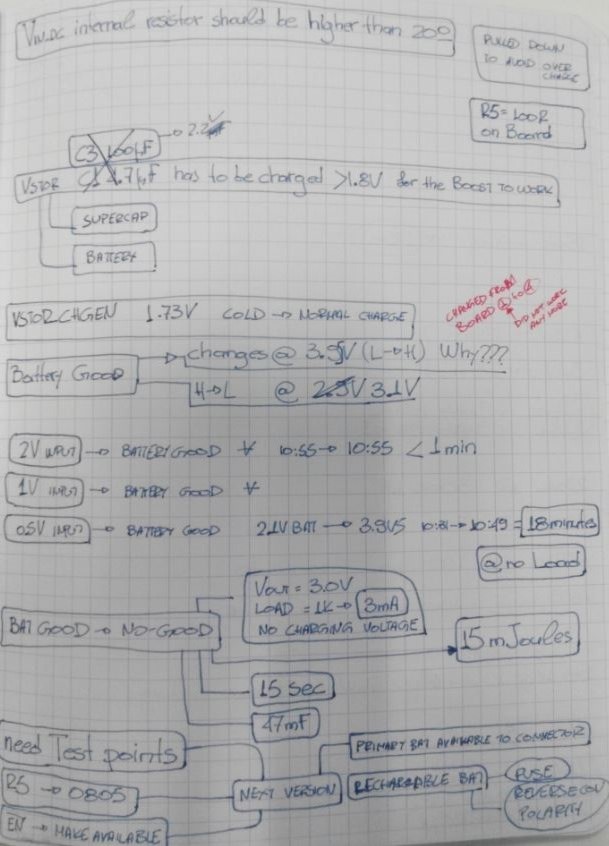 VIN_DC internal resistor should be higher than 20Ω
PULLED DOWN
TO AVOID OVER
CHARGE
R5 = 100R
on Board
C3 100µF → 2.2µF
VSTOR C1 4.7µF has to be charged >1.8V for the BOOST TO WORK
SUPERCAP
BATTERY
VSTOR CHGEN 1.73V COLD → NORMAL CHARGE
CHANGED FROM
BOARD ① to ④
DID NOT WORK
ANY MORE
Battery Good
changes @ 3.5V (L→H) Why???
H→L @ 2.5V 3.1V
2V INPUT → BATTERY GOOD ∀ 10:55 → 10:55 < 1 min
1V INPUT → BATTERY GOOD ∀
0.5V INPUT → BATTERY GOOD 2.1V BAT → 3.5V 10:31 → 10:49 = 18 minutes
@ no Load
VOUT = 3.0V
LOAD = 1K → 3mA
NO CHARGING VOLTAGE
BAT GOOD → NO-GOOD
15 mJoules
15 sec
47mF
need Test points
PRIMARY BAT AVAILABLE TO CONNECTOR
R5 → 0805
NEXT VERSION
RECHARGABLE BAT
FUSE
REVERSE
POLARITY
EN → MAKE AVAILABLE